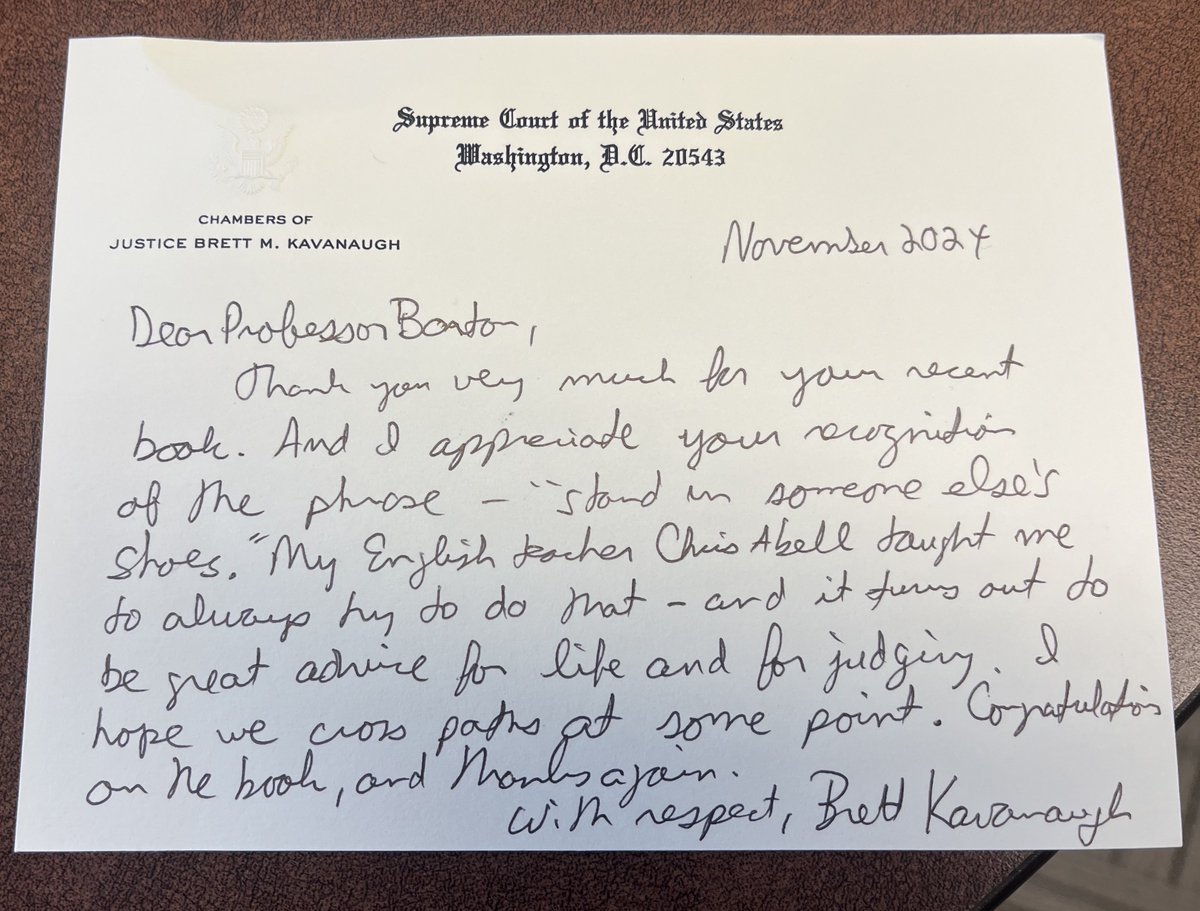 Supreme Court of the United States
Washington, D.C. 20543
CHAMBERS OF
JUSTICE BRETT M. KAVANAUGH
November 2024
Dear Professor Barton,
Thank you very much for your recent
book. And I appreciate your recognition
of the phrase – "stand in someone else's
shoes." My English teacher Chris Abell taught me
to always try to do that – and it turns out to
be great advice for life and for judging. I
hope we cross paths at some point. Congratulations
on the book, and thanks again.
With respect, Brett Kavanaugh